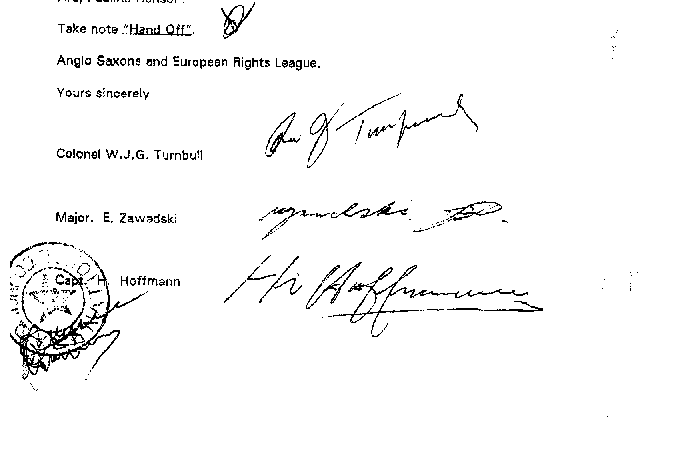 Take note "Hand Off".
Anglo Saxons and European Rights League.
Yours sincerely
Colonel W.J.G. Turnbull
Major. E. Zawadski
Capt. H. Hoffmann
Hoffmann